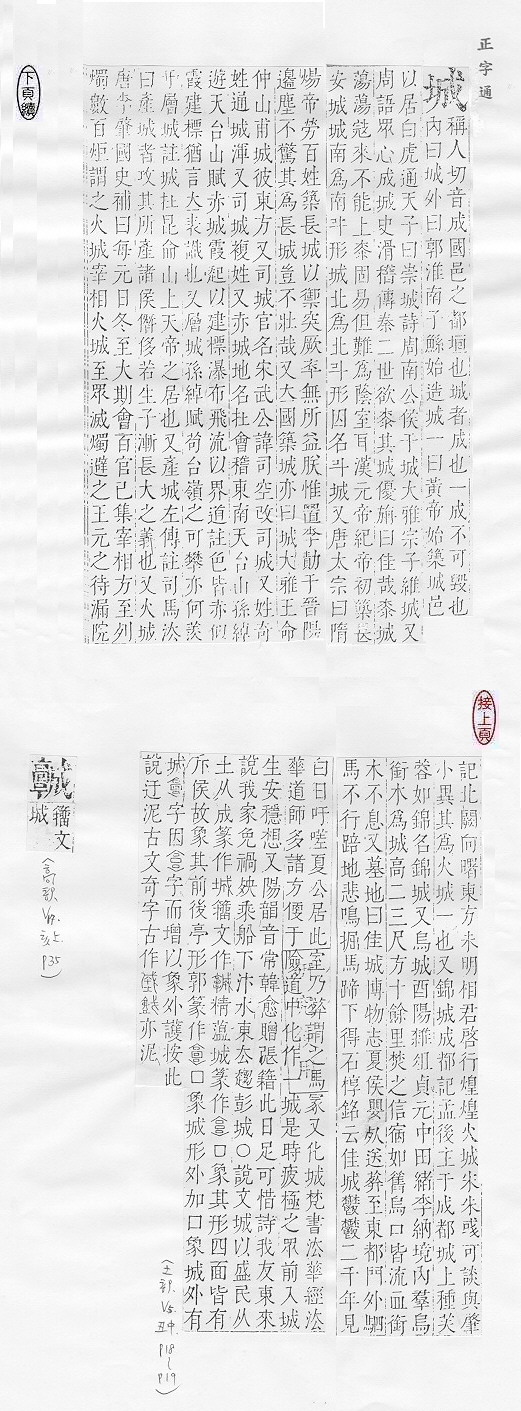 正字通
城
稱人切音成國邑之都垣也城者成也一成不可毀也
內曰城外曰郭淮南子鯀始造城一曰黃帝始築城邑
以居白虎通天子曰崇城詩周南公侯干城大雅宗子維城又
周語眾心成城史滑稽傳秦二世欲桼其城優旃曰佳哉桼城
蕩蕩寇來不能上桼固易但難爲蔭室耳漢元帝紀帝初築長
安城城南爲南斗形城北爲北斗形因名斗城又唐太宗曰隋
煬帝勞百姓築長城以禦突厥卒無所益朕惟置李勣于晉陽
邊塵不驚其爲長城豈不壯哉又大國築城亦曰城大雅王命
仲山甫城彼東方又司城官名宋武公諱司空改司城又姓奇
姓通城渾又司城複姓又赤城地名在會稽東南天台山孫綽
遊天台山賦赤城霞起以建標瀑布飛流以界道註色皆赤似
霞建標猶言大表識也又層城孫綽賦苟台嶺之可攀亦何羨
于層城註城在昆侖山上天帝之居也又產城左傳註司馬法
曰產城者攻其所產諸侯僭侈若生子漸長大之義也又火城
唐李肇國史補曰每元日冬至大期會百官已集宰相方至列
燭數百炬謂之火城宰相火城至眾滅燭避之王元之待漏院
下頁續
接上頁
記北闕向曙東方未明相君啓行煌煌火城朱朱彧可談與肇
小異其爲火城一也又錦城成都記孟後主于成都城上種芙
蓉如錦名錦城又烏城酉陽雜俎貞元中田緒李納境內羣烏
銜木爲城高二三尺方十餘里焚之信宿如舊烏口皆流血銜
木不息又墓地曰佳城博物志夏侯嬰死送葬至東都門外駟
馬不行踣地悲鳴掘馬蹄下得石椁銘云佳城鬱鬱二千年見
白日吁嗟夏公居此室乃葬謂之馬冢又化城梵書法華經法
華道師多諸方便于險道中化作一城是時疲極之眾前入城
生安穩想又陽韻音常韓愈贈張籍此日足可惜詩我友東來
說我家免禍殃乘船下汴水東去趨彭城〇說文城以盛民从
土从成篆作城籒文作𩫨精薀城篆作𩫏口象其形四面皆有
斥侯故象其前後亭形郭篆作𩫏口象城形外加口象城外有
城𩫏字因𩫏字而增以象外護按此
說迂泥古文奇字古作𩫨𩫨亦泥
𩫨
籒文
城